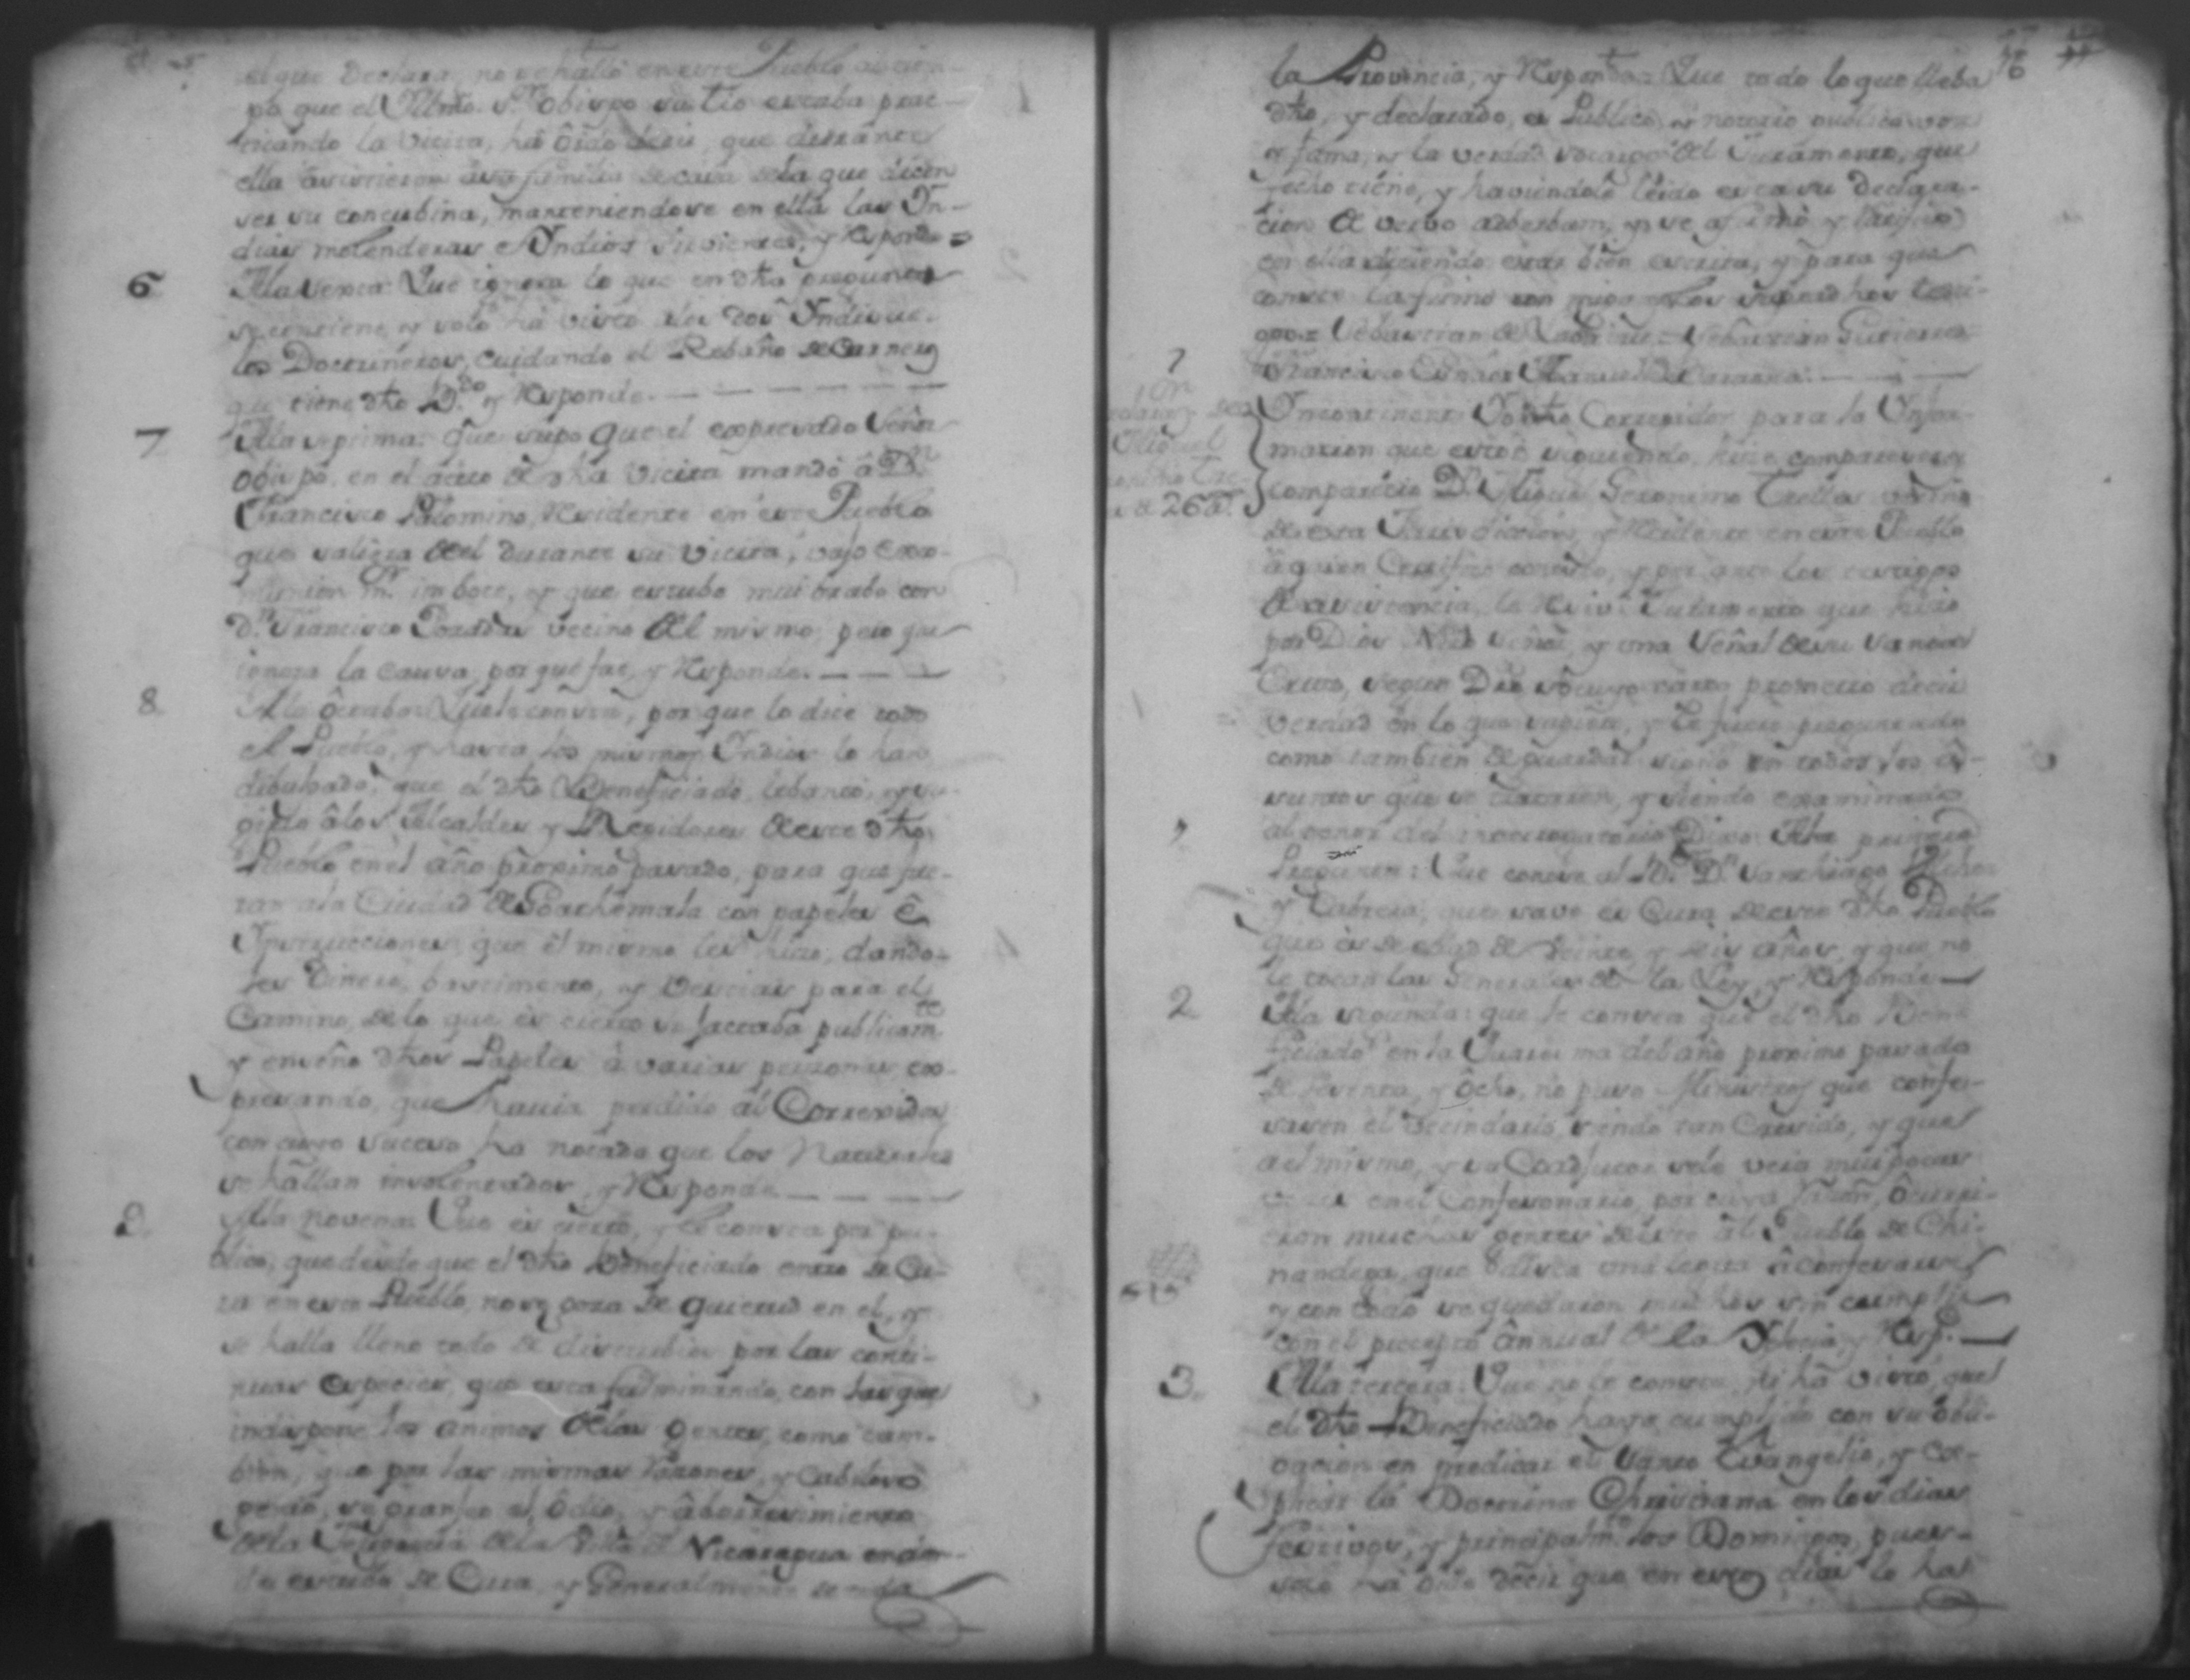 el que declara, no se halló en este Pueblo al tiem-
po que el Yllmo. Sor. Obispo su tio estaba prac-
ticando la vicita, há òido decir, que durante
ella asistieron á su familia de casa de la que dicen
ser su concubina, manteniendose en ella las Yn-
dias molenderas è Yndios sirvientes, y Responde =
6 Ala sexta: Que ignora lo que en dha pregunta
se contiene, y solo há visto alos dos Yndisue-
los Doctrineros, cuidando el Rebaño de Carneros
que tiene dho Bdo. y Responde. — — —
7 Ala septima: que supo que el expresado Señor
obispo, en el acto de dha vicita mandó á Dn.
Francisco Palomino, Recidente en este Pueblo
que saliera de el durante su vicita, vajo Exco-
munion
Dn. Francisco Posadas vecino del mismo, pero que
ignora la causa, por que fue, y Responde. — — —
8 Ala òctaba: Que le consta, por que lo dice todo
el Pueblo, y hasta los mismos Yndios lo han
dibulgado, que el dho Beneficiado, lebantó, y su-
girio á los Alcaldes y Regidores de este dho
Pueblo en el año proximo pasado, para que fue-
ran ala Ciudad de Goathemala con papeles è
Ynstrucciones, que èl mismo les hizo, dando-
les Dinero, bastimento, y bestias para el
Camino, de lo que es cierto se jactaba publicamte
y enseño dhos Papeles á varias personas, ex-
presando, que hauia perdido al Corregidor
con cuyo suceso ha notado que los Naturales
se hallan insolentados, y Responde — — —
9. Ala novena: Que es cierto, y le consta por pu-
blico, que desde que el dho Beneficiado entró de Cu-
ra en este Pueblo, no se goza de quietud en el, y
se halla lleno todo de disturbios por las conti-
nuas especies, que esta fulminando, con las que
indispone los animos de las gentes, como tam-
bien, que por las mismas razones, y
genio, se grangeo el òdio, y àborrecimiento
de la de la Villa de Nicaragua en don-
de estubo de Cura, y Generalmente de toda
la Provincia, y Responde: Que todo lo que lleba
dho, y declarado, es Publico, y notorio publica voz
y fama, y la verdad so cargo del Juramento, que
fecho tiene, y haviendole leido esta su declara-
cion de verbo adverbum, se afirmó y ratificó
en ella diciendo estar bien escrita, y para que
conste la firmó con migo y los supradhos testi-
gos = Sebastian de = Sebastian Gutierres
Francisco Manuel
Yncontinenti Yo dho Corregidor para la Ynfor-
macion que estoi siguiendo, hize comparecer y
comparecio Dn. Miguel Geronimo vecino
de esta Jurisdiccion, y Recidente en este Pueblo
á quien Certifico conosco, y por ante los testigos
de asistencia, le Reciví Juramento que hizo
por Dios Ntro Señor, y una Señal de su Santa
Cruz, segun Dro so cuyo cargo prometio decir
verdad en lo que supiere, y le fuere preguntado
como tambien de guardar sigilo en todos los à-
suntos que se trataren, y siendo examinado
al tenor del interrogatorio Dixo: Ala primera
Pregunta: Que conoce al Bdo. Dn. Santhiago
y Cabrera, que save es Cura de este dho Pueblo
que es de edad de Veinte y seis años, y que no
le tocan las Generales de la Ley, y Responde —
2 Ala segunda: que le consta que el dho Bene-
ficiado en la Quaresma del año proximo pasado
de setenta, y òcho, no puso Ministros que confe-
sasen el vecindario, siendo tan Crecido, y que
a el mismo, y su Coadjutor solo veia mui pocas
veces en el Confesonario, por cuya razon, òcurri-
eron muchas gentes de este al Pueblo de Chi-
nandega, que dista una legua á confesarse
y con todo se quedaron muchos sin cumplir
con el precepto ànnual de la Yglesia, y Resp. —
3. Ala tercera: Que no le consta, ni há visto, que
el dho Beneficiado haya cumplido con su obli-
gacion en predicar el Santo Evangelio, y ex-
plicar la Doctrina Christiana en los dias
festivos, y principalmte los Domingos, pues
solo há òido decir que en estos dias lo ha
Miguel
de 26 a.